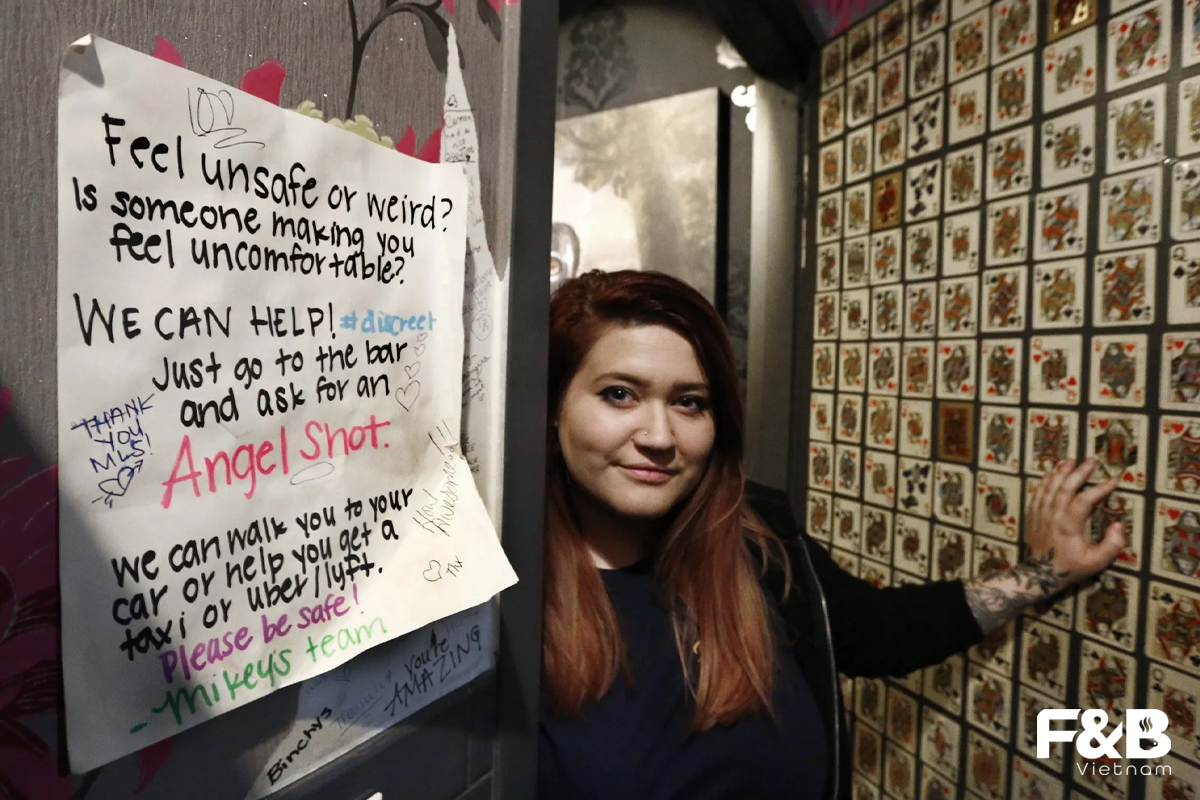 Feel unsafe or weird?
Is someone making you
feel uncomfortable?
WE CAN HELP! #discreet
Just go to the bar
and ask for an
Angel Shot.
THANK
YOU
MLS!
How
Awesome!!
we can walk you to your
car or help you get a
taxi or uber/lyft.
Thx
Please be safe!
- Mikey's team
you're
AMAZING
Binchys
F&B
Vietnam